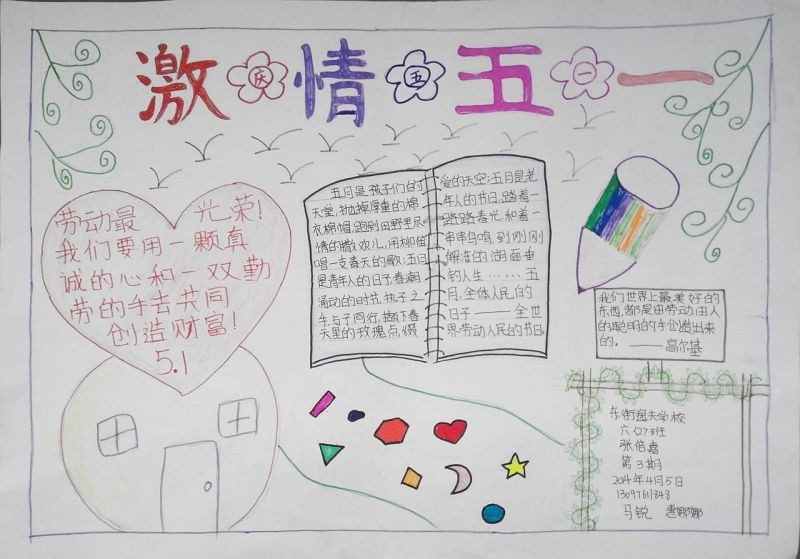 激 庆 情 五 五 二 一
劳动最 光荣!
我们要用一颗真
诚的心和一双勤
劳的手去共同
创造财富!
5.1
五月是孩子们的
天堂,抛掉厚重的棉
衣棉帽,跑到田野里尽
情的撒欢儿,用柳笛
唱一支春天的歌;五月
是青年人的日子,春潮
涌动的时节,执子之
手与子同行,撷下春
天里的玫瑰点缀
爱的天空;五月是老
年人的节日,踏着一
路踏春忙和着一
串串鸟鸣,到刚刚
解冻的湖面垂
钓人生……五
月,全体人民的
日子——全世
界劳动人民的节日.
我们世界上最美好的
东西,都是由劳动,由人
的聪明的手创造出来
的。——高尔基
东街逸夫学校
六(27)班
张倍嘉
第3期
2014年4月5日
马锐 惠娜娜